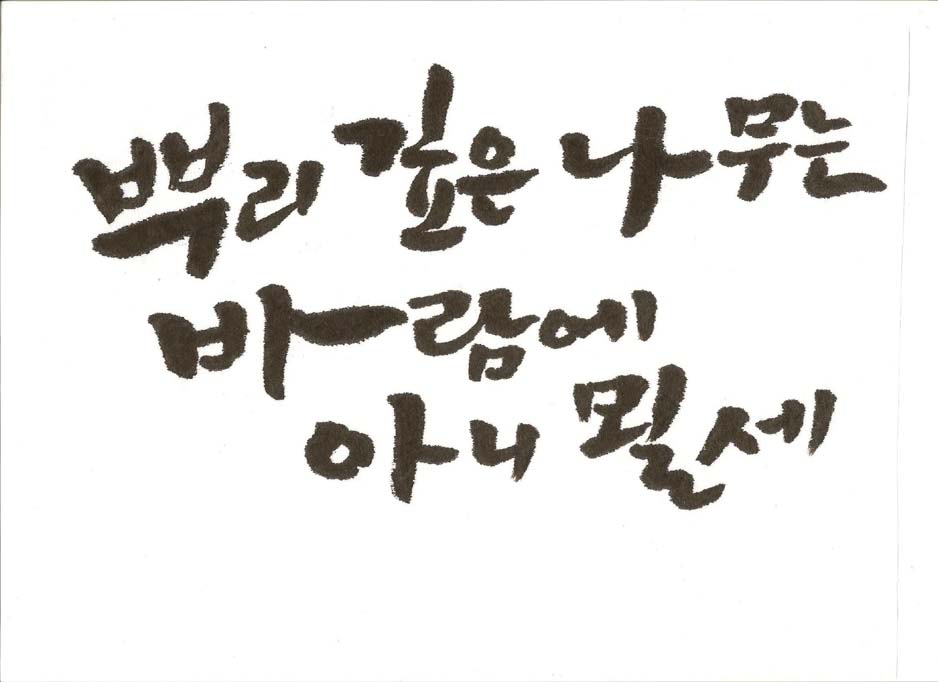 뿌리 깊은 나무는
바람에
아니 뮐세